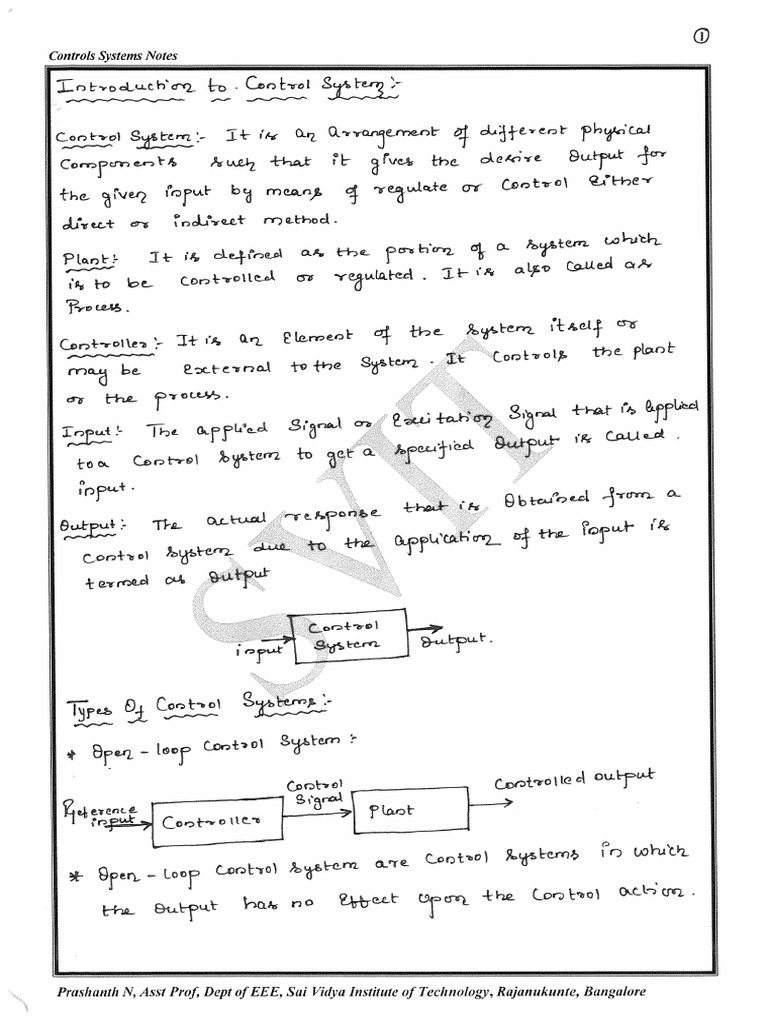 ①
Controls Systems Notes
Introduction to Control System:-
Control System:- It is an Arrangement of different physical
Components such that it gives the desire Output for
the given input by means of regulate or Control Either
direct or indirect method.
Plant:- It is defined as the portion of a system which
is to be Controlled or regulated. It is also Called as
Process.
Controller:- It is an Element of the System itself or
may be External to the System. It Controls the plant
or the process.
Input:- The applied Signal or Excitation Signal that is applied
to a Control System to get a specified Output is Called
input.
Output:- The actual response that is Obtained from a
Control System due to the application of the input is
termed as Output
input
Control
System
Output.
Types Of Control Systems:-
* Open-loop Control System:-
Reference
input
Controller
Control
Signal
Plant
Controlled output
* Open-Loop Control System are Control Systems in which
the Output has no Effect Upon the Control action.
SVIT
Prashanth N, Asst Prof, Dept of EEE, Sai Vidya Institute of Technology, Rajanukunte, Bangalore